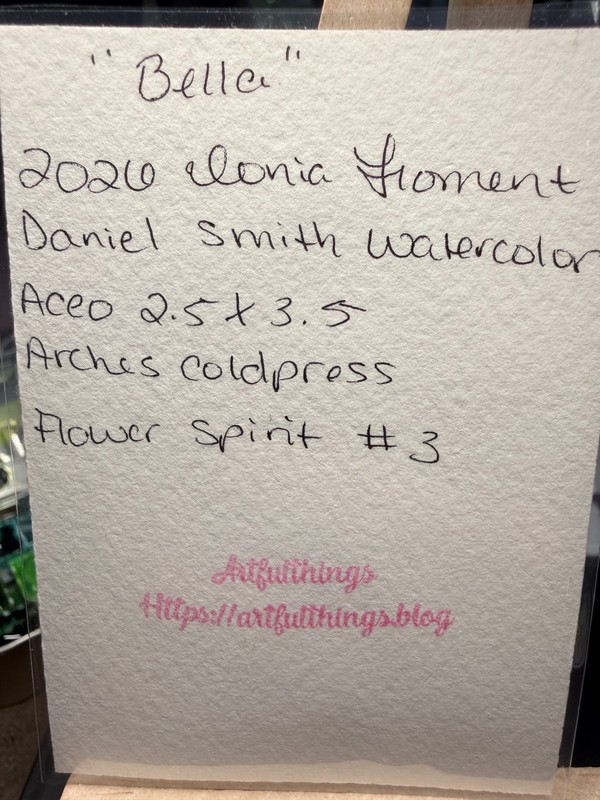 "Bella"
2026 Donia Froment
Daniel Smith Watercolor
Aceo 2.5 X 3.5
Arches coldpress
Flower Spirit # 3
Artfulthings
Https://artfulthings.blog